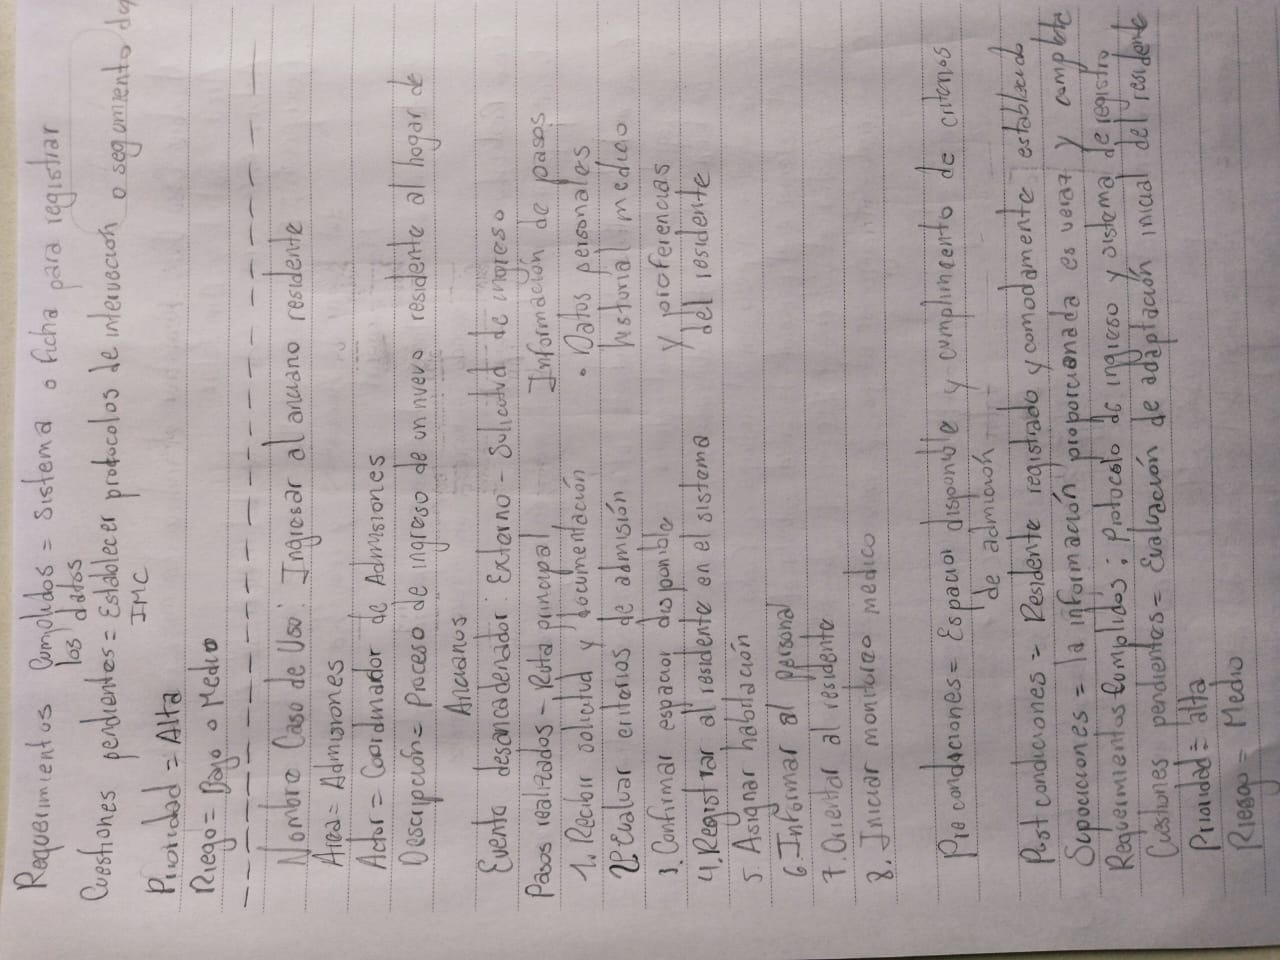 Requerimientos Cumplidos = Sistema o ficha para registrar
los datos
Cuestiones pendientes = Establecer protocolos de intervención o seguimiento
IMC
Prioridad = Alta
Riego = Bajo o Medio
Nombre Caso de Uso: Ingresar al anciano residente
Area = Admisiones
Actor = Coordinador de Admisiones
Descripción = Proceso de ingreso de un nuevo residente al hogar de
Ancianos
Evento desancadenador: Externo - Solicitud de ingreso
Pasos realizados - Ruta principal Información de pasos
1. Recibir solicitud y documentación • Datos personales
2. Evaluar criterios de admisión historial medico
3. Confirmar espacior disponible y preferencias
4. Registrar al residente en el sistema del residente
5 Asignar habitación
6. Informar al personal
7. Orientar al residente
8. Iniciar monitoreo medico
Precondiciones = Espacior disponible y cumplimiento de criterios
de admición
Post condiciones = Residente registrado y comodamente establecido
Suposiciones = la información proporcionada es veraz y completa
Requerimientos Cumplidos: protocolo de ingreso y sistema de registro
Cuestiones pendientes = Evaluación de adaptación inicial del residente
Prioridad = alta
Riesgo = Medio